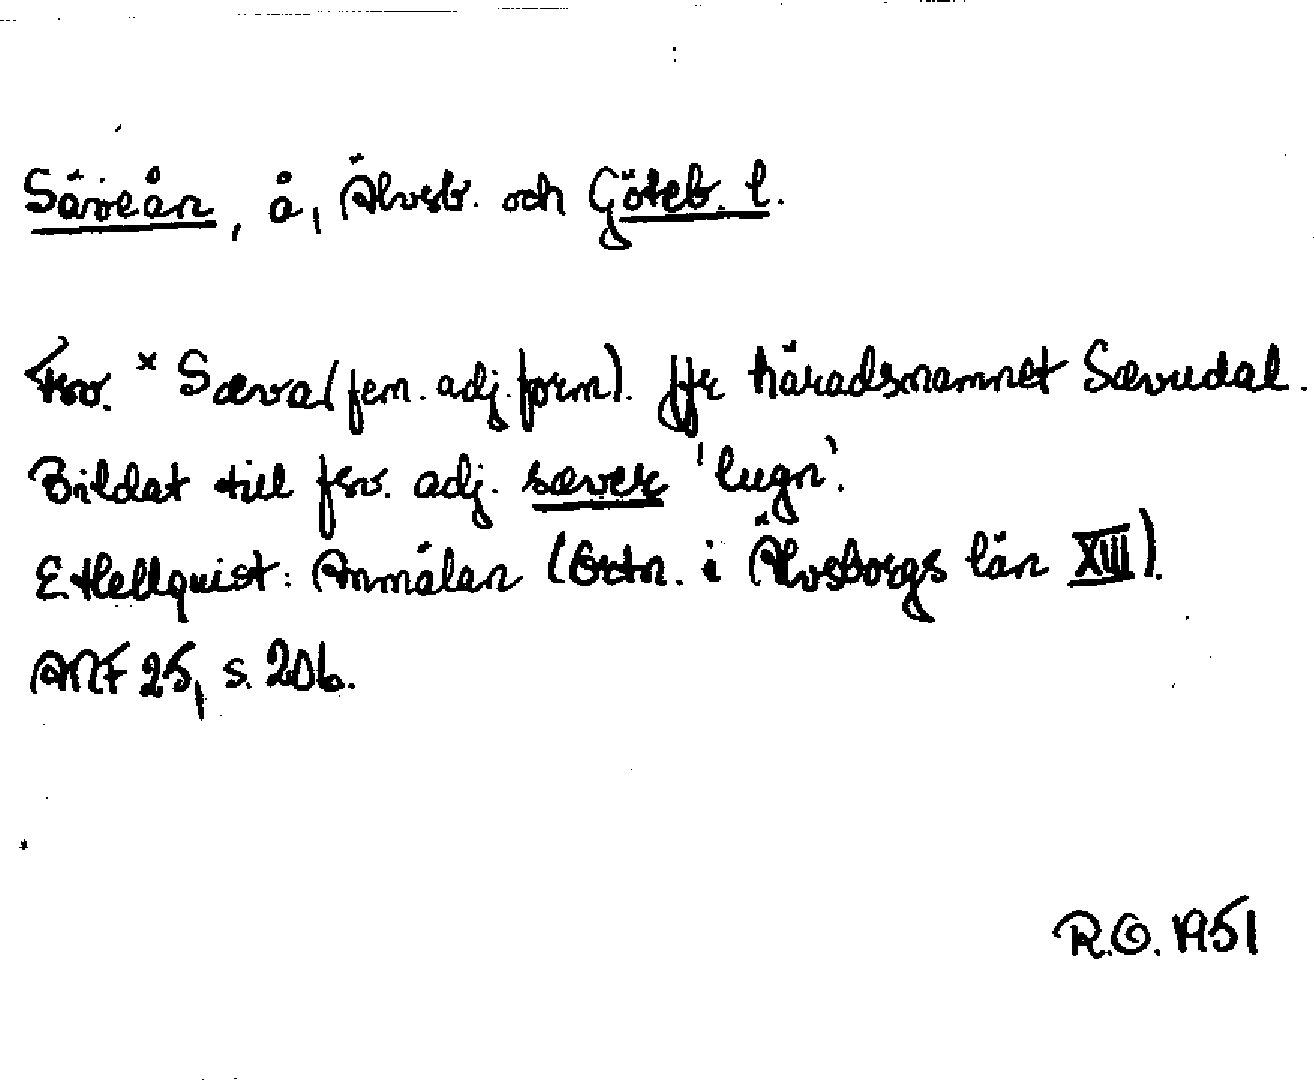 Säveån, å, Älvsb. och Göteb. l.
Fsv. *Sæva (fem. adj. form). Jfr häradsnamnet Sævudal.
Bildat till fsv. adj. sæver 'lugn'.
E Hellquist: Anmälan (Ortn. i Älvsborgs län XIII).
ANF 25, s. 206.
R.O. 1951